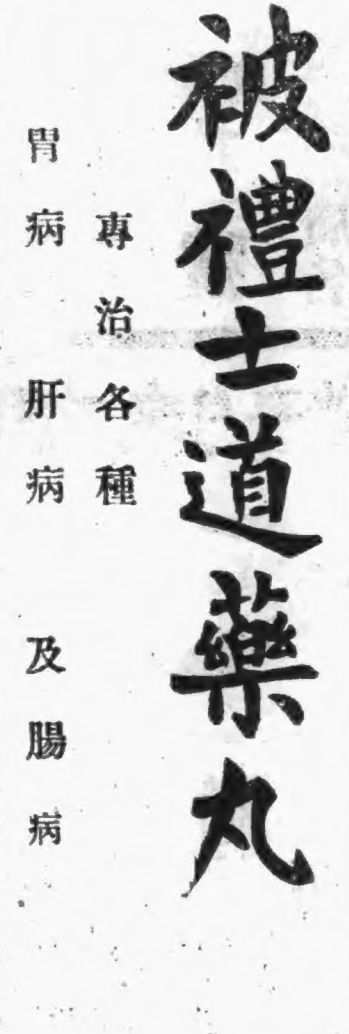 被禮士道藥丸
專治各種
胃病 肝病 及腸病